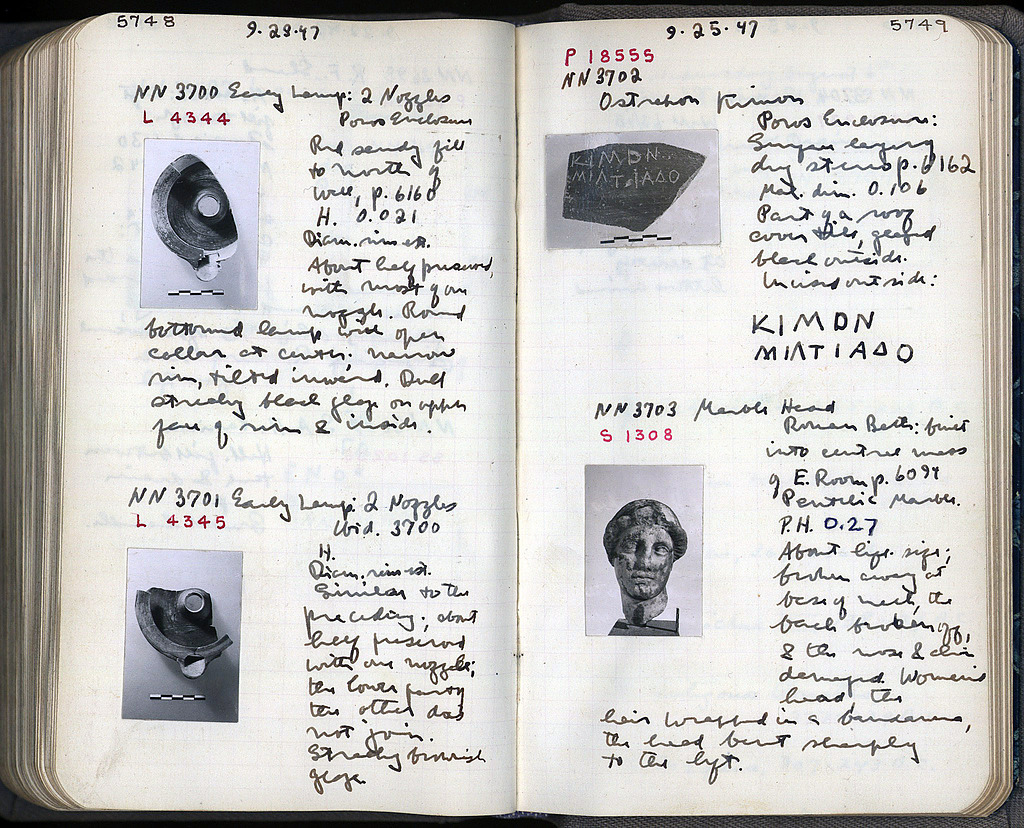 5748
9-23-47
NN 3700 Early Lamp: 2 Nozzles
L 4344
Poros Enclosure
Red sandy fill
to north of
Well, p. 6160
H. 0.021
Diam. rim est.
About half preserved,
with most of one
nozzle. Round
bottomed lamp with open
collar at center: narrow
rim, tilted inward. Dull
streaky black glaze on upper
face of rim & inside.
NN 3701 Early Lamp: 2 Nozzles
L 4345
Ibid. 3700
H.
Diam. rim est.
Similar to the
preceding; about
half preserved
with one nozzle;
the lower part of
the other does
not join.
Streaky brownish
glaze
5749
9-25-47
P 18555
NN 3702
Ostrakon Kimon
Poros Enclosure:
dry stones p. 6162
Max. dim. 0.106
Part of a roof
cover tile, glazed
black outside.
Incised outside:
ΚΙΜΟΝ
ΜΙΛΤΙΑΔΟ
ΚΙΜΟΝ
ΜΙΛΤΙΑΔΟ
NN 3703 Marble Head
S 1308
Roman Bath: built
into central mass
of E. Room p. 6094
Pentelic Marble.
P.H. 0.27
About life size;
broken away at
base of neck, the
back broken off,
& the nose & chin
damaged. Woman's
head the
hair wrapped in a bandanna,
the head bent sharply
to the left.